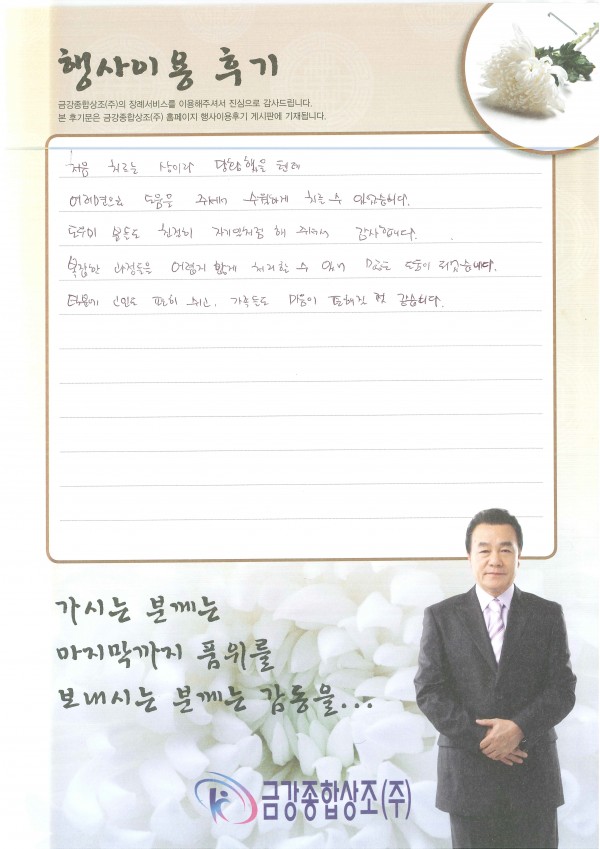 행사이용 후기
금강종합상조(주)의 장례서비스를 이용해주셔서 진심으로 감사드립니다.
본 후기문은 금강종합상조(주) 홈페이지 행사이용후기 게시판에 기재됩니다.
처음 치르는 상이라 당황했을 텐데
도움을 주셔서 수월하게 치를 수 있었습니다.
도우미 분들도 친절히 자기일처럼 해 주셔서 감사합니다.
복잡한 과정들을 어렵지 않게 처리할 수 있게 많은 도움이 되었습니다.
덕분에 고인도 편히 쉬고, 가족들도 마음이 편해진 것 같습니다.
가시는 분께는
마지막까지 품위를
보내시는 분께는 감동을...
금강종합상조(주)